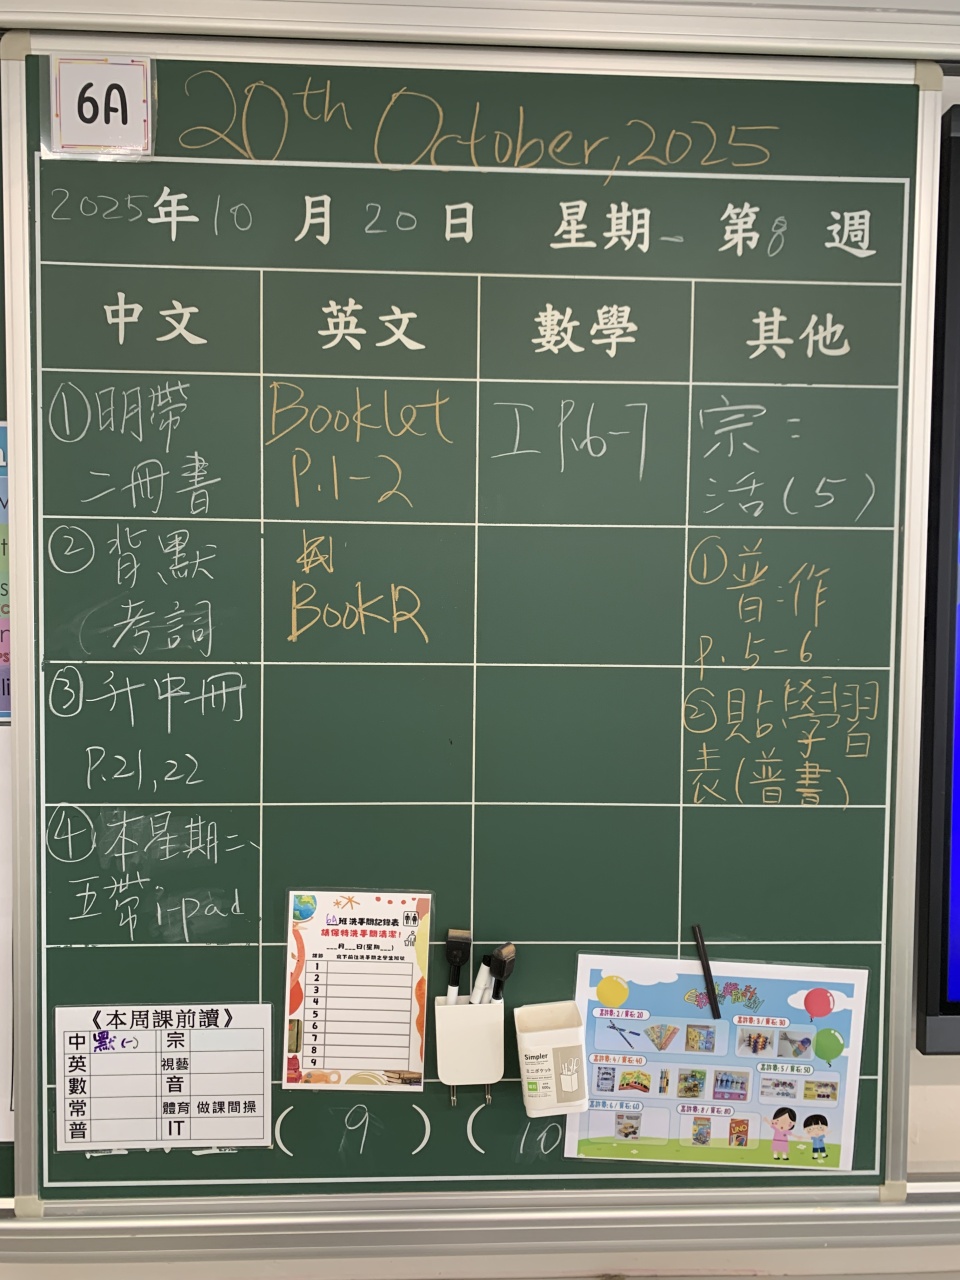 6A
20th October, 2025
2025年10月20日 星期一 第8週
中文 英文 數學 其他
①明帶
二冊書
Booklet
P.1-2
工 P.6-7
宗：
活(5)
②背默
(考詞
BookR
①普:作
P.5-6
③升中冊
P.21,22
②貼學習
表(普書)
④本星期二、
五帶i-pad
6A班洗手間記錄表
請保持洗手間清潔！
___月___日(星期___)
1
2
3
4
5
6
7
8
9
《本周課前讀》
中 默(一) 宗
英 視藝
數 音
常 體育 做課間操
普 IT
Simpler
ミニポケット
( 9 ) ( 10
UNO